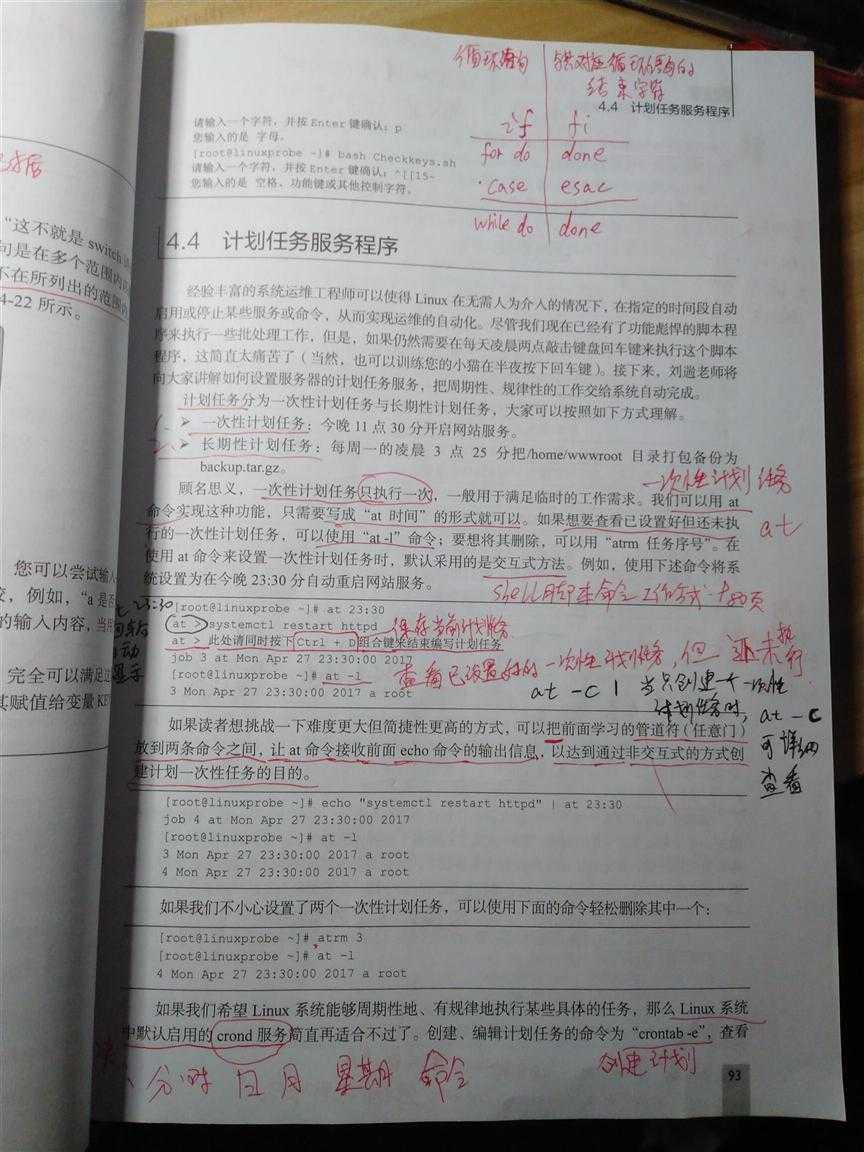 循环语句 与其对应循环语句的
结束字符
4.4 计划任务服务程序
if fi
for do done
case esac
while do done
请输入一个字符，并按 Enter 键确认：p
您输入的是 字母。
[root@linuxprobe ~]# bash Checkkeys.sh
请输入一个字符，并按 Enter 键确认：^[[15~
您输入的是 空格、功能键或其他控制字符。
4.4 计划任务服务程序
经验丰富的系统运维工程师可以使得 Linux 在无需人为介入的情况下，在指定的时间段自动
启用或停止某些服务或命令，从而实现运维的自动化。尽管我们现在已经有了功能彪悍的脚本程
序来执行一些批处理工作，但是，如果仍然需要在每天凌晨两点敲击键盘回车键来执行这个脚本
程序，这简直太痛苦了（当然，也可以训练您的小猫在半夜按下回车键）。接下来，刘遄老师将
向大家讲解如何设置服务器的计划任务服务，把周期性、规律性的工作交给系统自动完成。
计划任务分为一次性计划任务与长期性计划任务，大家可以按照如下方式理解。
1. ➢ 一次性计划任务：今晚 11 点 30 分开启网站服务。
2. ➢ 长期性计划任务：每周一的凌晨 3 点 25 分把/home/wwwroot 目录打包备份为
backup.tar.gz。
一次性计划任务
at
顾名思义，一次性计划任务只执行一次，一般用于满足临时的工作需求。我们可以用 at
命令实现这种功能，只需要写成“at 时间”的形式就可以。如果想要查看已设置好但还未执
行的一次性计划任务，可以使用“at -l”命令；要想将其删除，可以用“atrm 任务序号”。在
使用 at 命令来设置一次性计划任务时，默认采用的是交互式方法。例如，使用下述命令将系
统设置为在今晚 23:30 分自动重启网站服务。
shell脚本命令工作方式
[root@linuxprobe ~]# at 23:30
at > systemctl restart httpd
保存当前计划任务
at > 此处请同时按下 Ctrl + D 组合键来结束编写计划任务
job 3 at Mon Apr 27 23:30:00 2017
[root@linuxprobe ~]# at -l
查看已设置好的一次性计划任务，但还未执行
3 Mon Apr 27 23:30:00 2017 a root
at -c 1 当只创建一个一次性
计划任务时，at -c
可详细
查看
如果读者想挑战一下难度更大但简捷性更高的方式，可以把前面学习的管道符（任意门）
放到两条命令之间，让 at 命令接收前面 echo 命令的输出信息，以达到通过非交互式的方式创
建计划一次性任务的目的。
[root@linuxprobe ~]# echo "systemctl restart httpd" | at 23:30
job 4 at Mon Apr 27 23:30:00 2017
[root@linuxprobe ~]# at -l
3 Mon Apr 27 23:30:00 2017 a root
4 Mon Apr 27 23:30:00 2017 a root
如果我们不小心设置了两个一次性计划任务，可以使用下面的命令轻松删除其中一个：
[root@linuxprobe ~]# atrm 3
[root@linuxprobe ~]# at -l
4 Mon Apr 27 23:30:00 2017 a root
如果我们希望 Linux 系统能够周期性地、有规律地执行某些具体的任务，那么 Linux 系统
中默认启用的 crond 服务简直再适合不过了。创建、编辑计划任务的命令为“crontab -e”，查看
创建计划
分 时 日 月 星期 命令
93
“这不就是 switch
句是在多个范围内
不在所列出的范围
4-22 所示。
您可以尝试输
例如，“a 是否
的输入内容，当用
完全可以满足
其赋值给变量 KEY